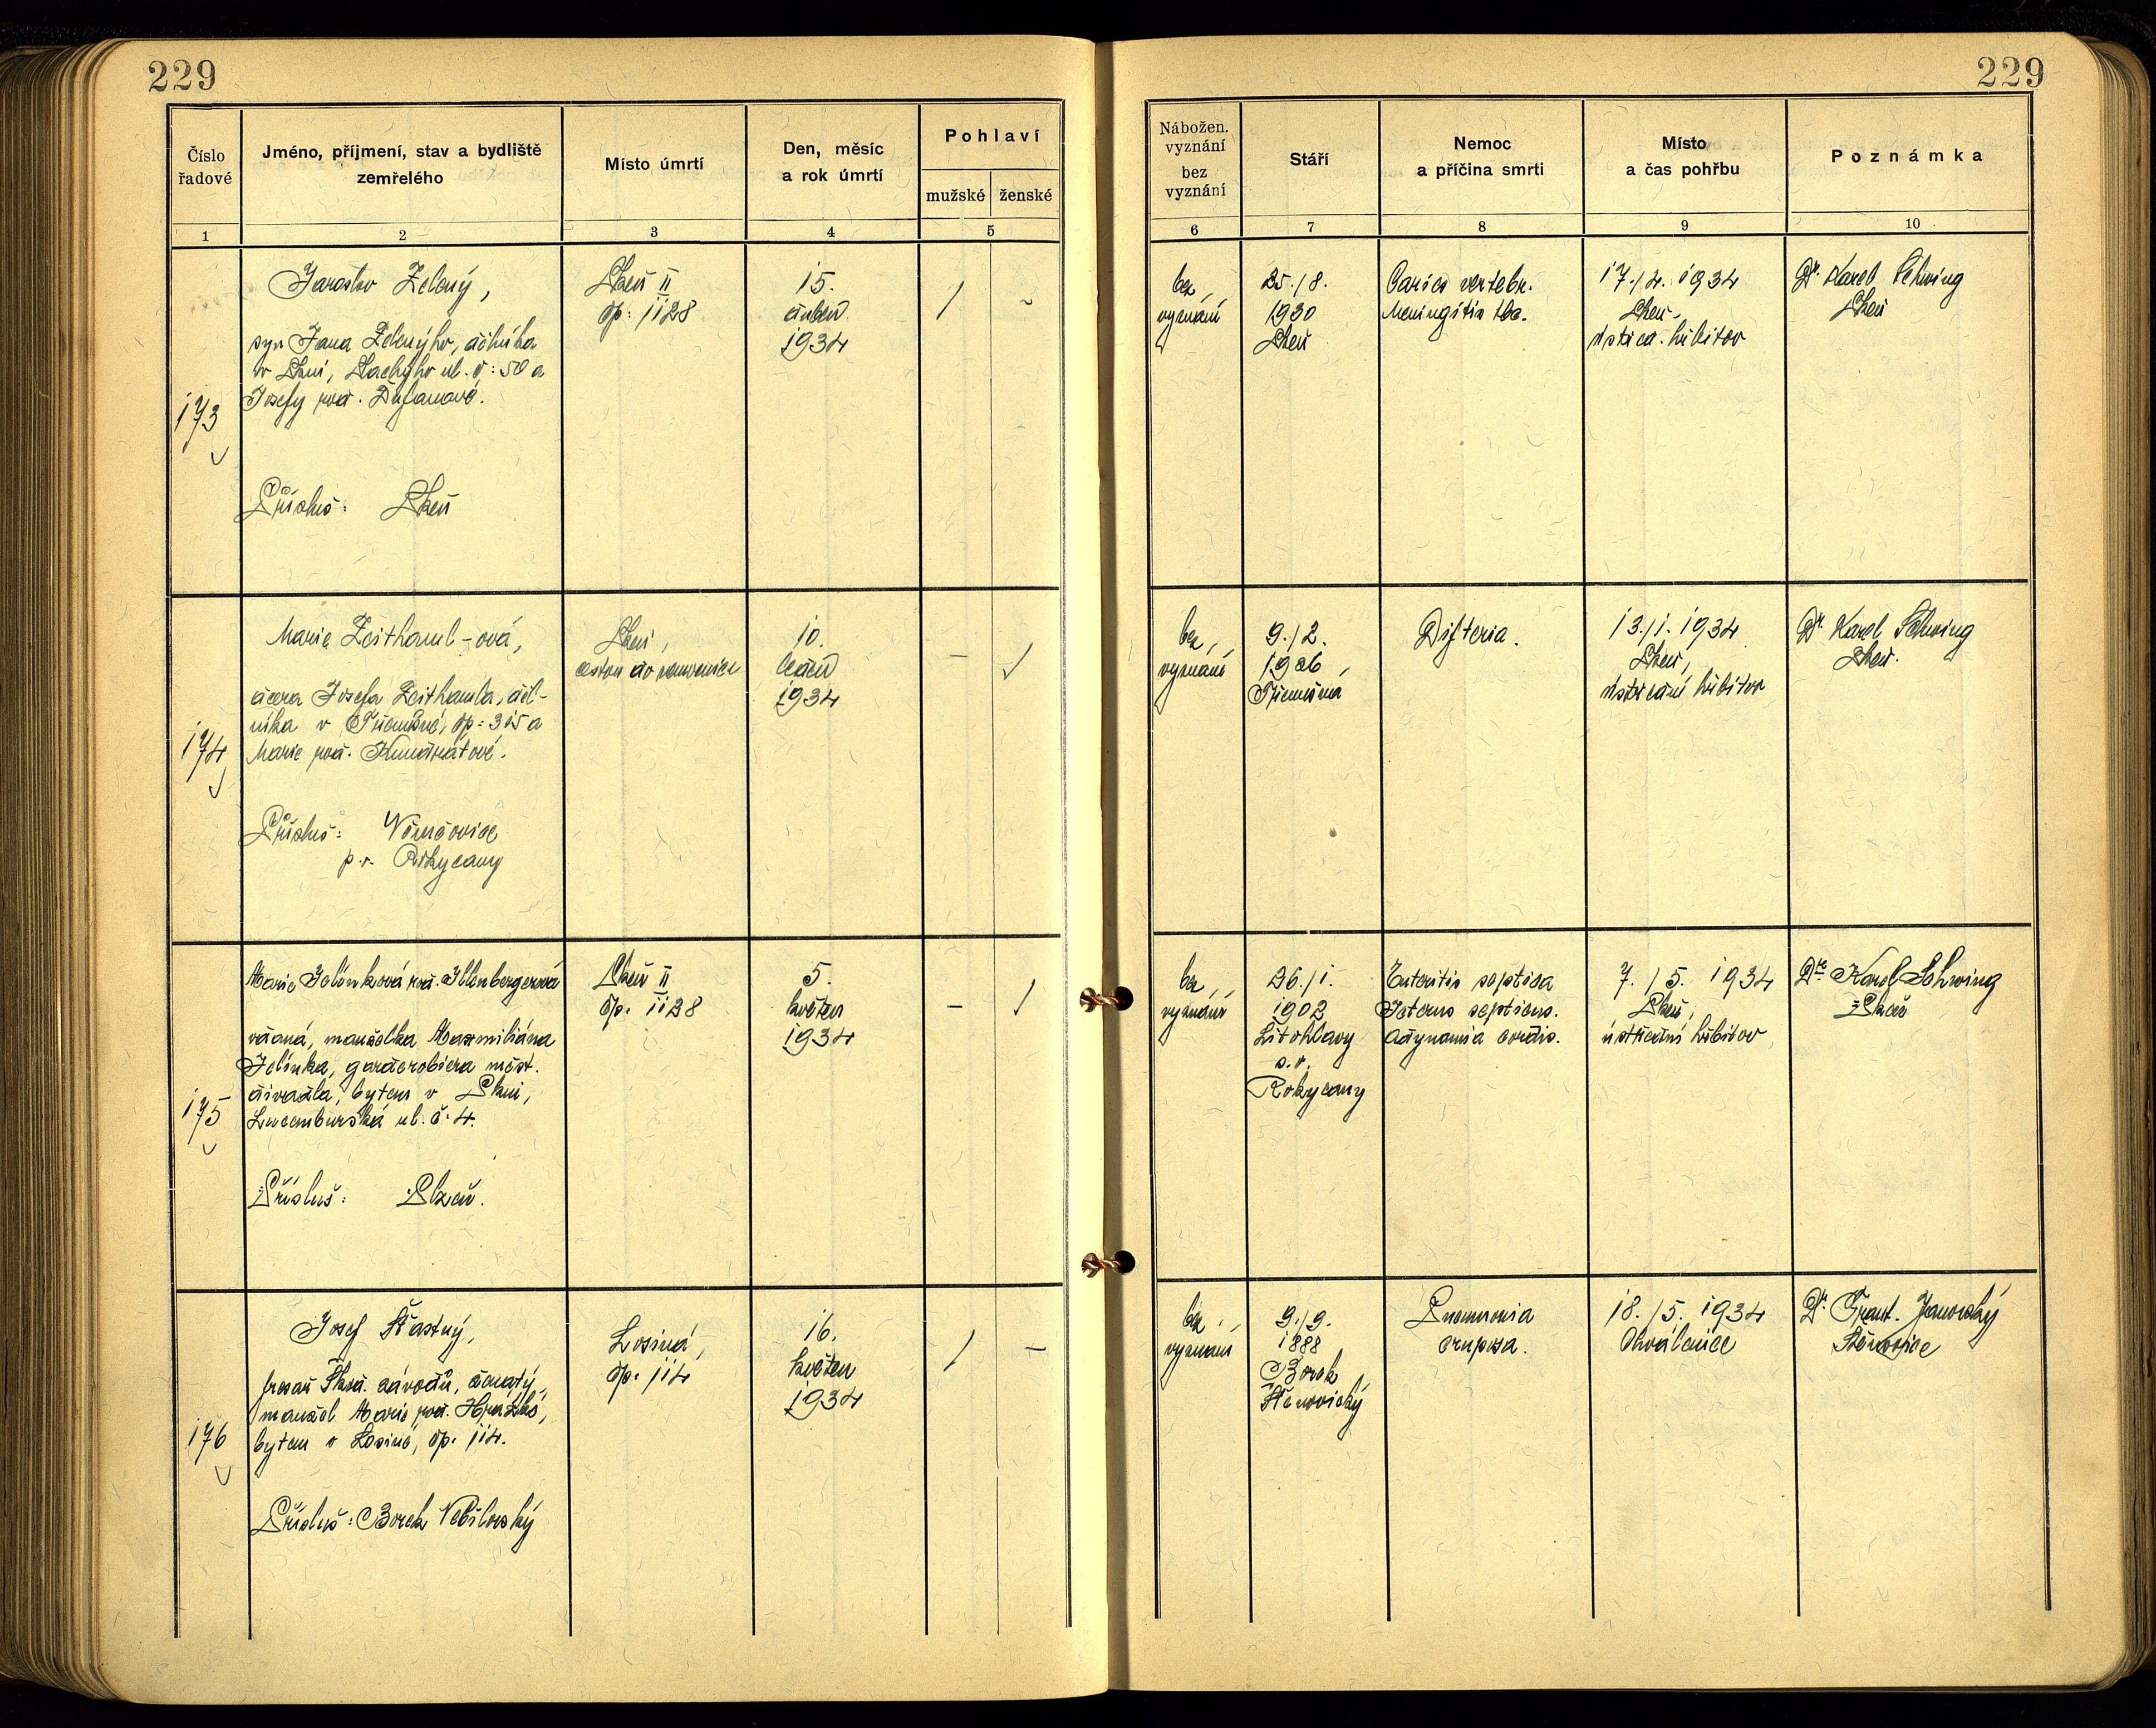 229
229
Číslo řadové
Jméno, příjmení, stav a bydliště zemřelého
Místo úmrtí
Den, měsíc a rok úmrtí
Pohlaví
mužské
ženské
1
2
3
4
5
Nábožen. vyznání
bez vyznání
Stáří
Nemoc a příčina smrti
Místo a čas pohřbu
Poznámka
6
7
8
9
10
173
Jaroslav Zelený,
syn Jana Zelenýho, dělníka
v Plzni, ul. č: 50 a
Josefy roz.
Přísluš: Plzeň
Plzeň II
čp: 1128
15.
duben
1934
/
-
bez
vyznání
25./8.
1930
Plzeň
Caries vertebr.
Meningitis tbc.
17./4. 1934
Plzeň,
hřbitov
Dr. Karel Schwing
Plzeň
174
Marie Zeithaml-ová,
dcera Josefa Zeithamla, děl-
níka v Třemošné, čp: 315 a
Marie roz.
Přísluš:
p. r. Rokycany
Plzeň,
cestou do nemocnice
10.
leden
1934
-
✓
bez
vyznání
9./2.
1926,
Třemošná
Difteria.
13./1. 1934
Plzeň,
ústřední hřbitov
Dr. Karel Schwing
Plzeň.
175
Marie Jelínková roz. Illenbergerová
vdaná, manželka Maxmiliána
Jelínka, garderobiera měst.
divadla, bytem v Plzni,
Lucemburská ul. č. 4.
Přísluš: Plzeň.
Plzeň II
čp. 1128
5.
květen
1934
-
/
bez
vyznání
26./1.
1902
Litohlavy
s. o.
Rokycany
Enteritis septica
Icterus septicus.
Adynamia cordis.
7./5. 1934
Plzeň,
ústřední hřbitov
Dr. Karel Schwing
Plzeň
176
Josef Šťastný,
frezař Škod. závodů, ženatý,
manžel. Marie roz.
bytem v Losiné, čp. 114.
Přísluš: Borek Nebílovský
Losiná,
čp. 114
16.
květen
1934
/
-
bez
vyznání
9./9.
1888
Borek
Štěnovický
Pneumonia
cruposa.
18./5. 1934
Chválenice
Dr. Frant. Janovský
Štěnovice